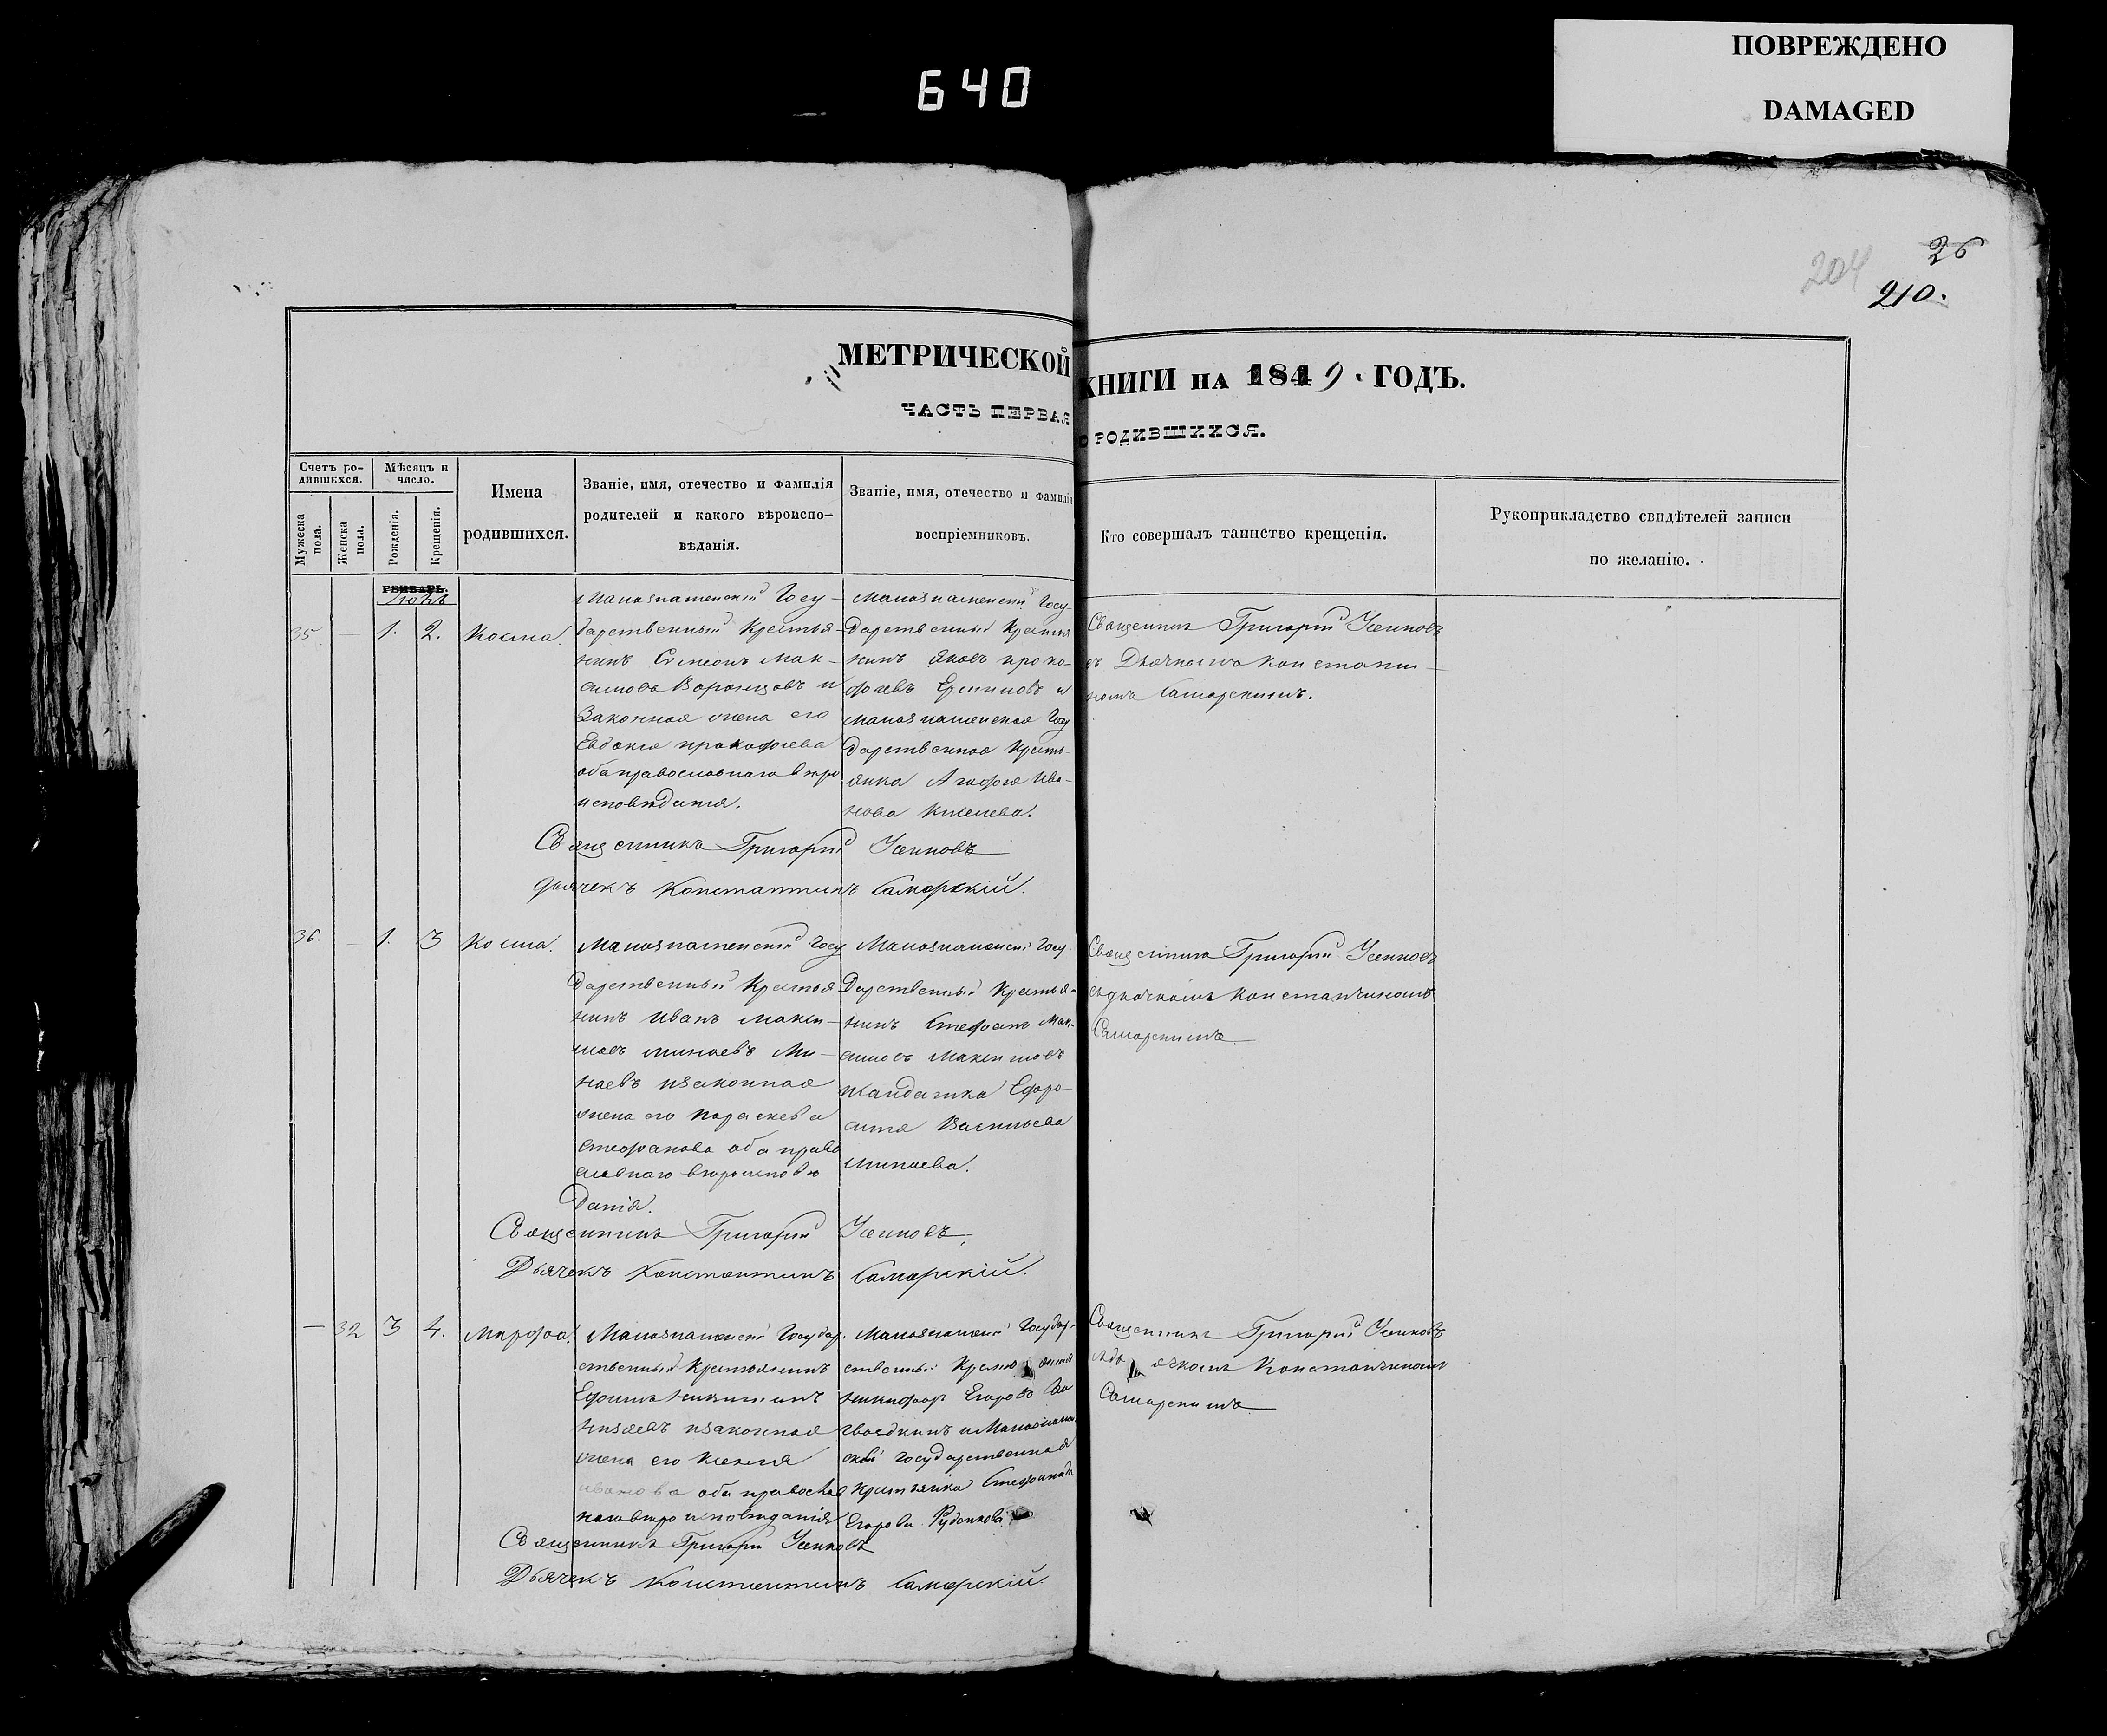 ПОВРЕЖДЕНО
DAMAGED
640
26
204
210.
МЕТРИЧЕСКОЙ КНИГИ НА 1849. ГОДЪ.
ЧАСТЬ ПЕРВАЯ О РОДИВШИХСЯ.
Счетъ ро-
дившихся.
Мужеска пола.
Женска пола.
Мѣсяцъ и
число.
Рожденія.
Крещенія.
Имена
родившихся.
Званіе, имя, отечество и фамилія
родителей и какого вѣроиспо-
вѣданія.
Званіе, имя, отечество и фамилія
воспріемниковъ.
Кто совершалъ таинство крещенія.
Рукоприкладство свидѣтелей записи
по желанію.
ГЕНВАРЬ.
35 — 1. 2. Косма.
Государственный Крестья-
нинъ Симеонъ Мак-
симовъ Воронцовъ и
Законная жена его
Евдокия прокофиева
оба православнаго вѣро
исповѣдания.
Государственный Крестья
нинъ Яковъ проко-
фиевъ и
Государственная Кресть-
янка Агафия Ива-
нова
Священникъ Григорій
съ Дьячкомъ Константи-
номъ Самарскимъ.
Священникъ Григорій
Дьячекъ Константинъ Самарскій.
36. — 1. 3 Косма.
Госу
дарственный Крестья
нинъ Иванъ Макси-
мовъ Ми-
наевъ изаконная
жена его Параскева
Стефанова оба право
славнаго вѣроисповѣ
данія.
Госу-
дарственный Крестья-
нинъ Стефанъ Мак-
симовъ
Ефро-
синия Васильева
Минаева.
Священникъ Григорій
сдьячкомъ Константиномъ
Самарскимъ
Священникъ Григорій
Дьячекъ Константинъ Самарскій.
— 32 3 4. Марфа.
Государ-
ственный Крестьянинъ
Ефимъ
изаконная
жена его Ксения
иванова оба православ
наго вѣро исповѣданія
Государ-
ственный
Никифоръ Егоровъ
государственная
Крестьянка Стефанида
Егорова Руденкова.
Священникъ Григорій
Константиномъ
Самарскимъ
Священникъ Григорій
Дьячекъ Константинъ Самарскій.